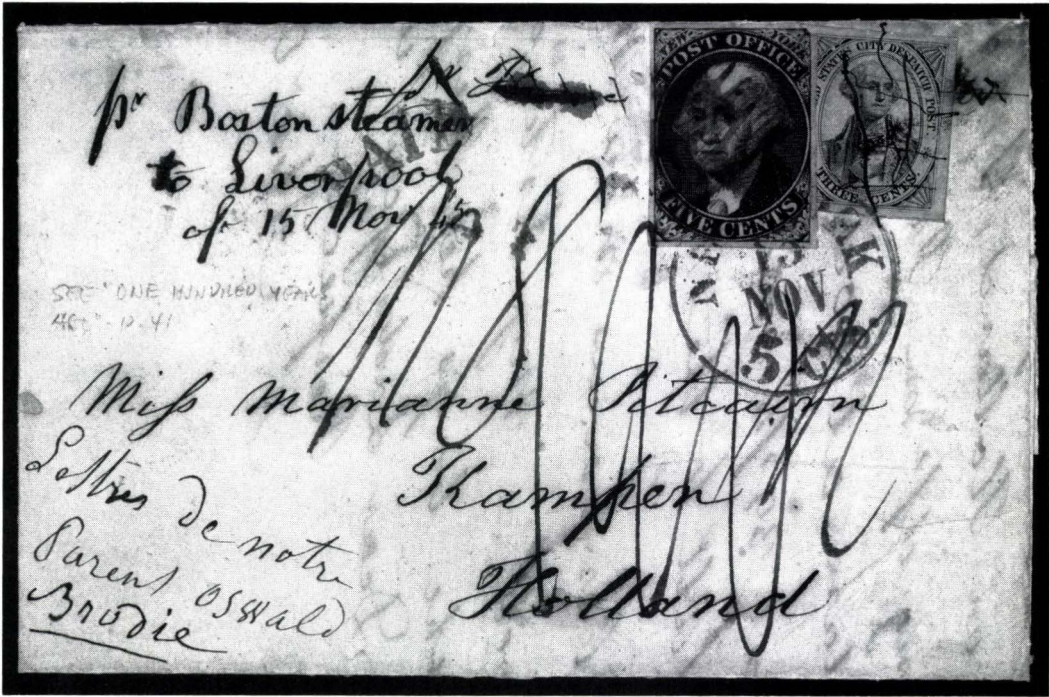 pr Boston steamer
to Liverpool
of 15 Nov 45
PAID
NEW YORK
POST OFFICE
FIVE CENTS
STATES CITY DESPATCH POST
THREE CENTS
15
NOV
5 cts.
SEE "ONE HUNDRED YEARS
AGO" P. 41
Miss Marianne Pitcairn
Kampen
Holland
Lettres de notre
Parent Oswald
Brodie